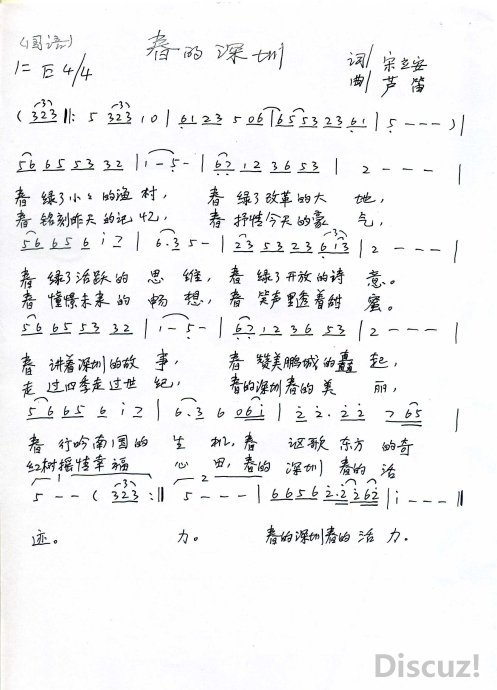 (国语)
春的深圳
1=E 4/4
词 宋立安
曲 芦笛
( 323 ||: 5 323 1 0 | 61 23 5 06 | 65 53 23 61 | 5 - - - ) |
56 65 53 32 | 1 - 5 - | 67 12 36 53 | 2 - - - |
春 绿了小小的渔 村, 春 绿了改革的大 地,
春 铭刻昨天的记忆, 春 抒情今天的豪 气,
56 65 6 i 2 | 6.3 5 - | 23 53 23 613 | 2 - - - |
春 绿了活跃的 思 维, 春 绿了开放的诗 意。
春 憧憬未来的 畅 想, 春 笑声里透着甜 蜜。
56 65 53 32 | 1 - 5 - | 67 12 36 53 | 2 - - - |
春 讲着深圳的故 事, 春 赞美鹏城的矗 起,
走 过四季走过世 纪, 春的深圳春的美 丽,
56 65 6 i 2 | 6.3 6 06i | 2 2. 2 2 2 65 |
春 行吟南国的 生 机,春 讴歌 东方 的奇
红树摇情幸福 心 田,春的 深圳 春的 活
1 2
5 - - ( 323 :|| 5 - - - | 66 56 2.2 262 | i - - - ||
迹。 力。 春的深圳春的 活 力.
Discuz!